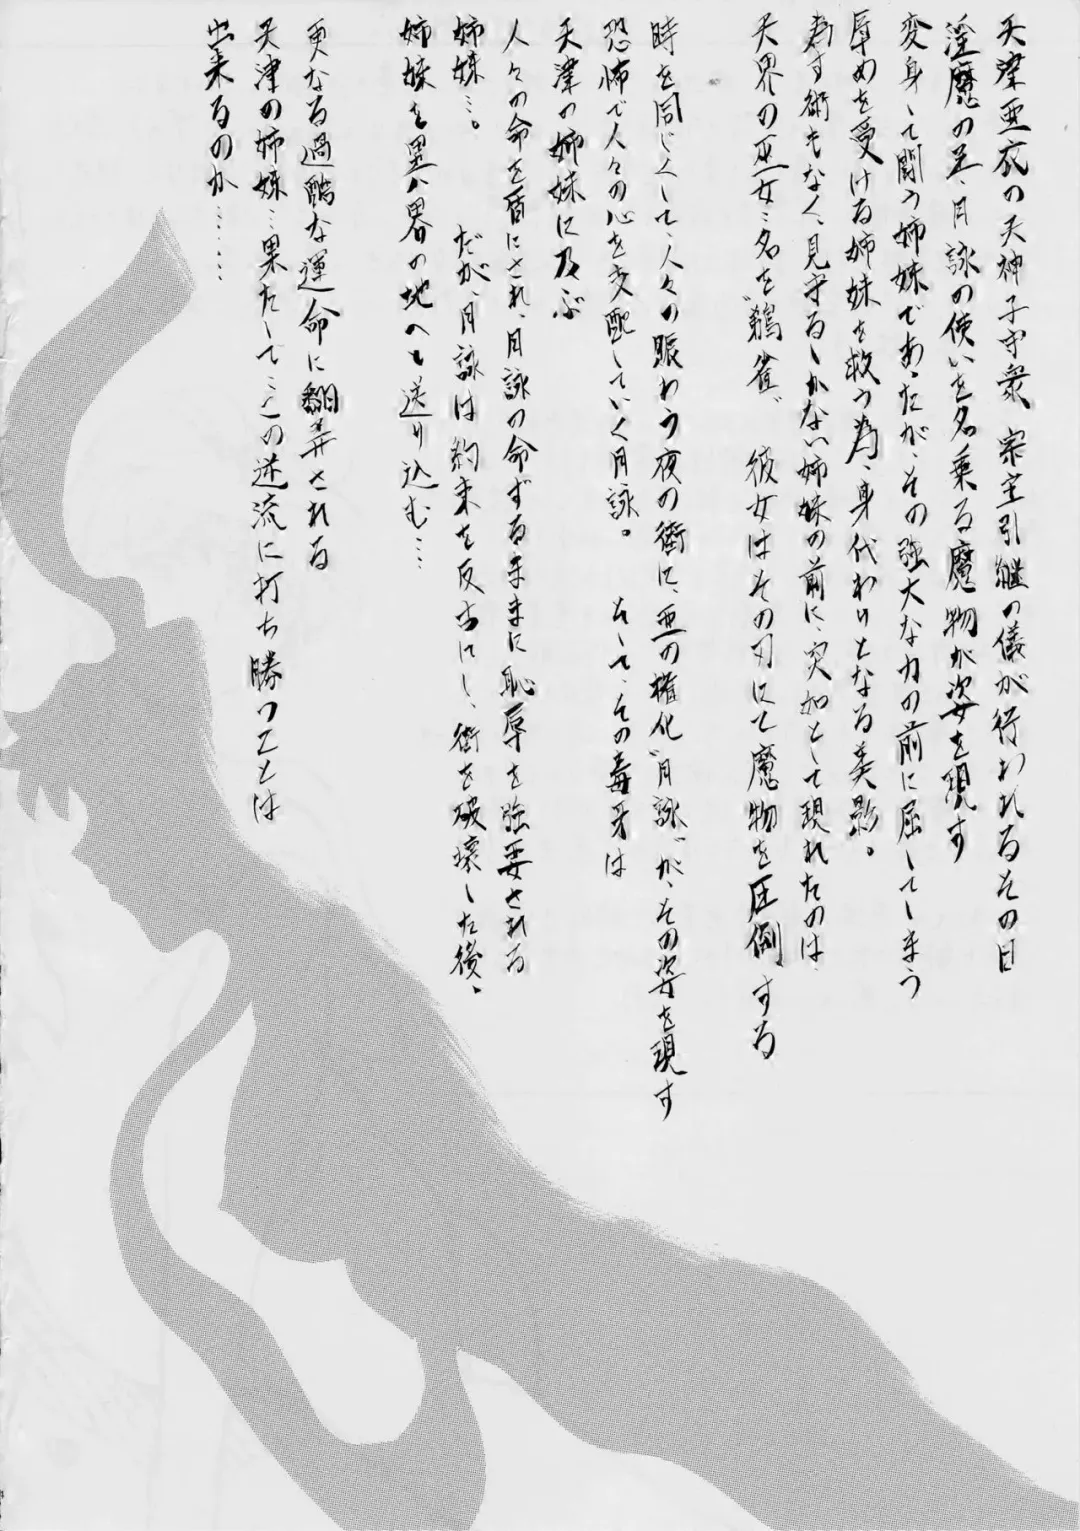 天津亜衣の天神子守衆、宗主引継の儀が行われるその日
淫魔の足、月詠の使いを名乗る魔物が姿を現す
変身して闘う姉妹であったが、その強大な力の前に屈してしまう
辱めを受ける姉妹を救う為、身代わりとなる美影。
為す術もなく、見守るしかない姉妹の前に、突如として現れたのは
天界の巫女…名を〝鶺雀〟 彼女はその刃にて魔物を圧倒する
時を同じくして、人々の賑わう夜の街に、悪の権化〝月詠〟が、その姿を現す
恐怖で人々の心を支配していく月詠。 そして、その毒牙は
天津の姉妹に及ぶ
人々の命を盾にされ、月詠の命ずるままに恥辱を強要される
姉妹…。 だが、月詠は約束を反古にし、街を破壊した後、
姉妹を異八界の地へと送り込む…
更なる過酷な運命に翻弄される
天津の姉妹…果たして…この逆流に打ち勝つことは
出来るのか……